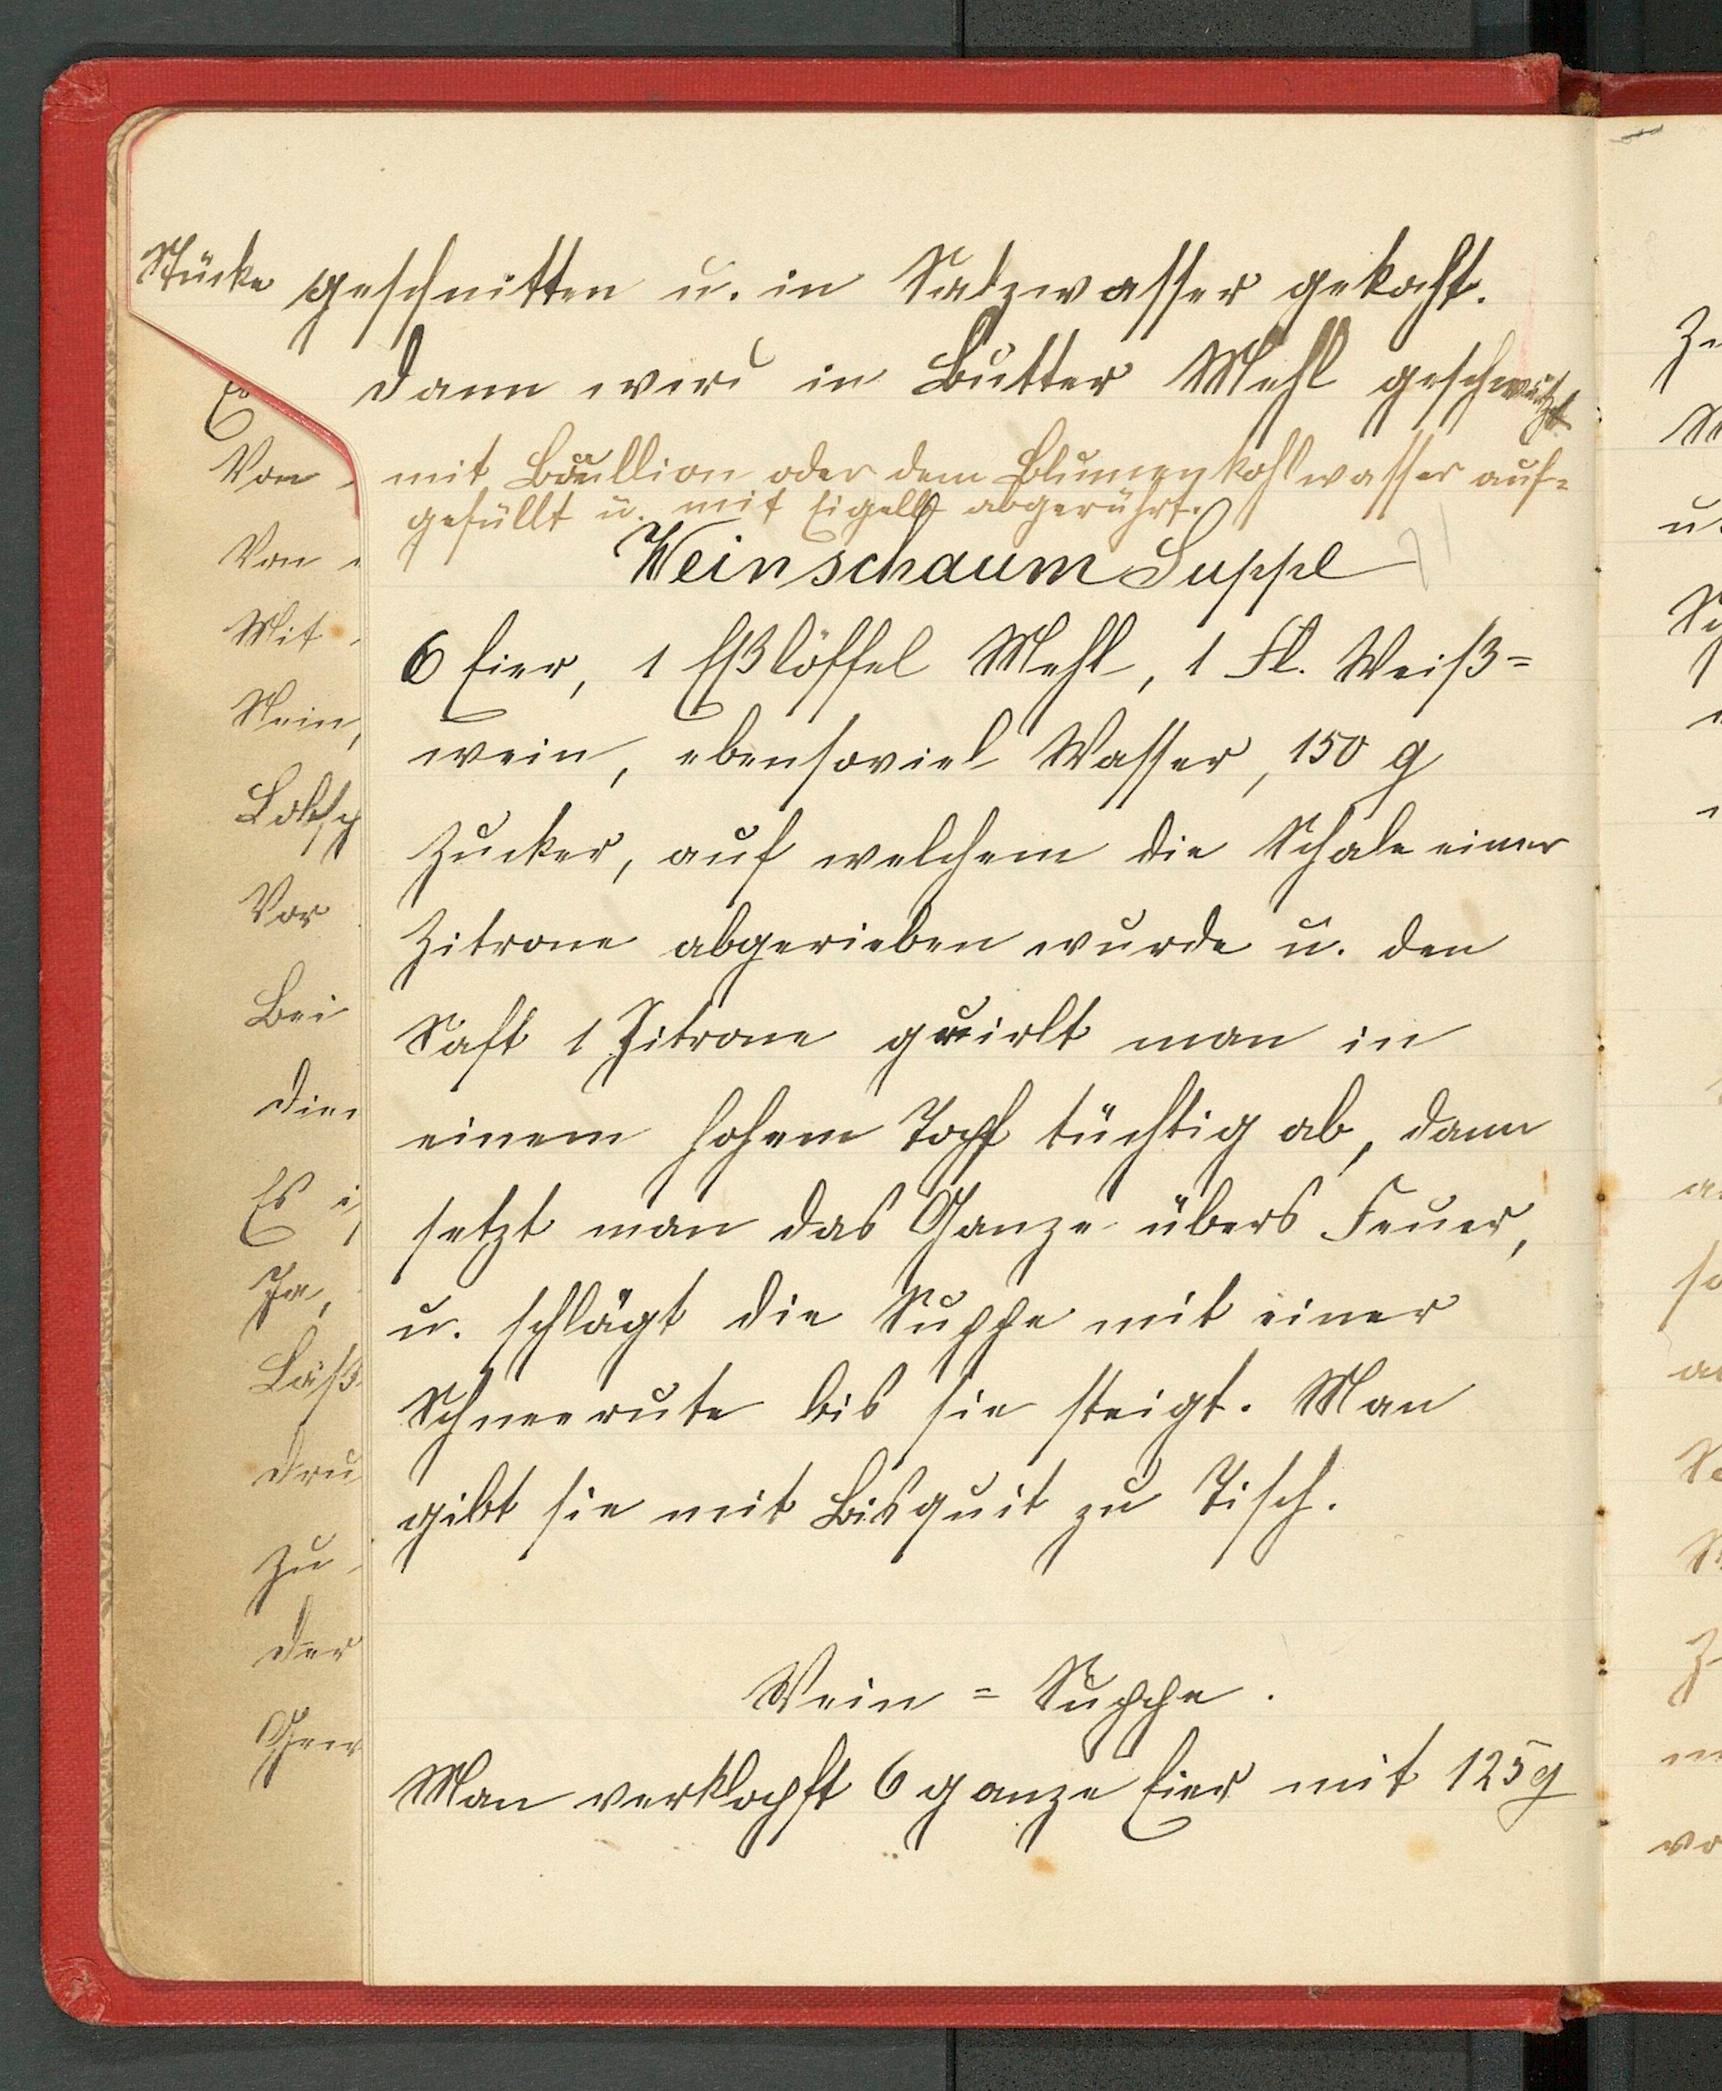 Stücke geschnitten u. in Salzwasser gekocht.
Dann wird in Butter Mehl geschwitzt
mit Bouillion oder dem Blumenkohlwasser auf-
gefüllt u. mit Eigelb abgerührt.
Weinschaum Suppe
6 Eier, 1 Eßlöffel Mehl, 1 Fl. Weiß=
wein, ebensoviel Wasser, 150 g
Zucker, auf welchem die Schale einer
Zitrone abgerieben wurde u. den
Saft 1 Zitrone quirlt man in
einem hohem Topf tüchtig ab, dann
setzt man das Ganze übers Feuer,
u. schlägt die Suppe mit einer
Schneerute bis sie steigt. Man
gibt sie mit Bisquit zu Tisch.
Wein = Suppe.
Man verklopft 6 ganze Eier mit 125 g
Von
Von
Mit
Nein,
Vor
Bei
Es
Ja,
Zu
der